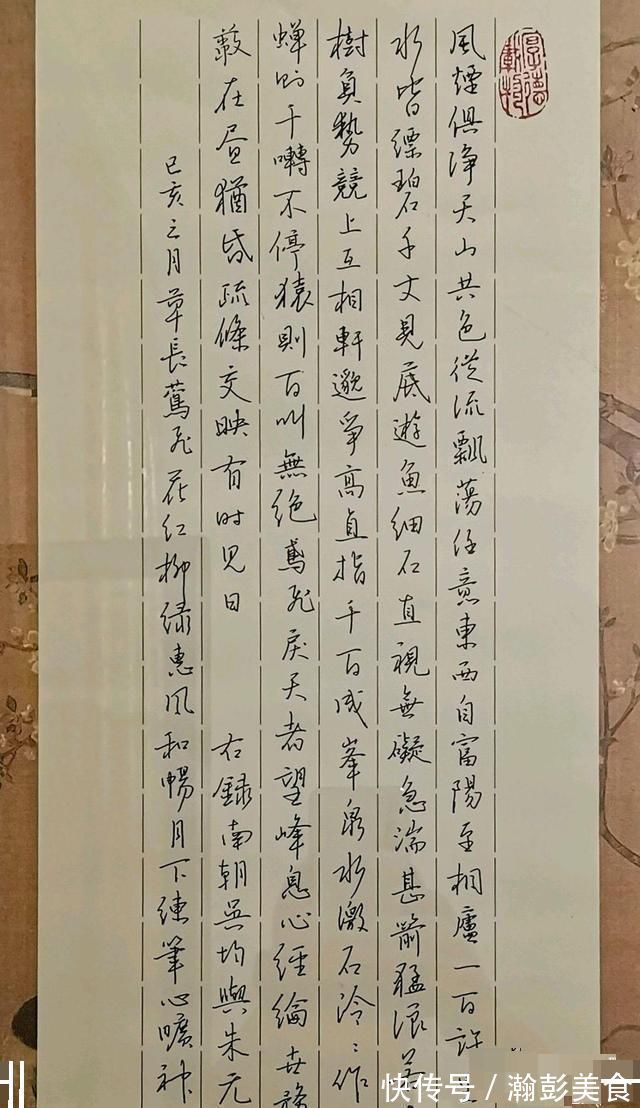 厚德載物
風煙俱浄天山共色從流飄蕩任意東西自富陽至桐廬一百許
水皆縹碧千丈見底遊魚細石直視無礙急湍甚箭猛浪若
樹負勢競上互相軒邈爭高直指千百成峯泉水激石泠〻作
蟬則千囀不停猿則百叫無絶鳶飛戾天者望峰息心經綸世務
蔽在昼猶昏疏條交映有时見日 右録南朝吳均與朱元
己亥三月草長鶯飛花红柳绿惠风和暢月下练筆心曠神
快传号/瀚彭美食